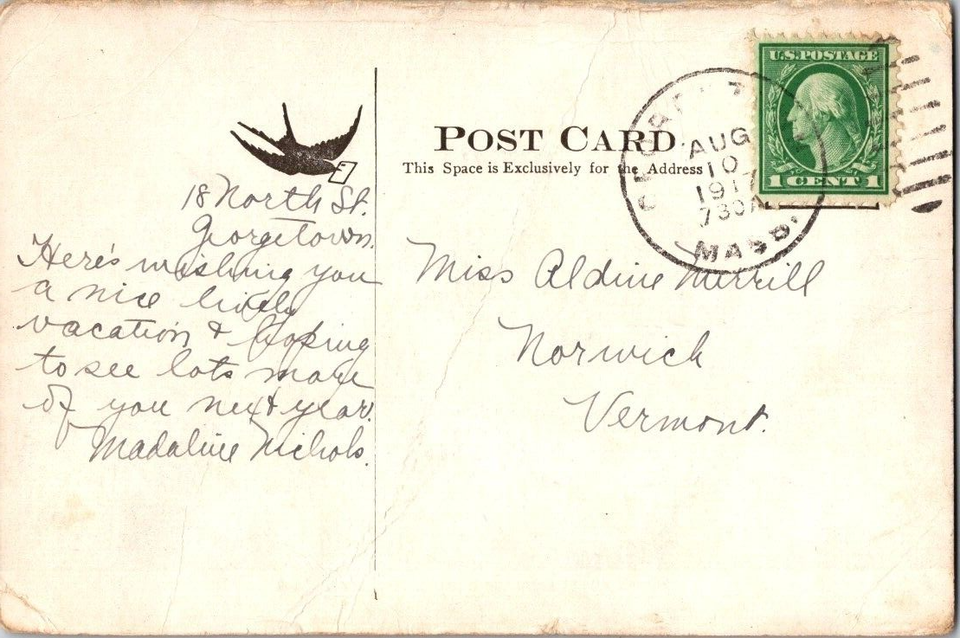 U.S. POSTAGE
1 CENT 1
AUG
10
1917
730A
MASS.
POST CARD
This Space is Exclusively for the Address
18 North St.
Georgetown.
Here's wishing you
a nice lively
vacation & hoping
to see lots more
of you next year.
Madaline Nichols.
Miss Aldine Merrill
Norwich
Vermont.